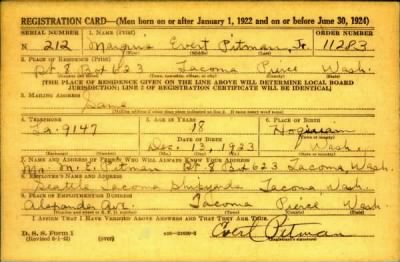 REGISTRATION CARD—(Men born on or after January 1, 1922 and on or before June 30, 1924)
SERIAL NUMBER 1. NAME (Print) ORDER NUMBER
N 212 Evert Pitman, Jr. 11283
2. PLACE OF RESIDENCE (Print)
Rt 8 Bx 623 Tacoma Pierce Wash.
[THE PLACE OF RESIDENCE GIVEN ON THE LINE ABOVE WILL DETERMINE LOCAL BOARD
JURISDICTION; LINE 2 OF REGISTRATION CERTIFICATE WILL BE IDENTICAL]
3. MAILING ADDRESS
Same
4. TELEPHONE 5. AGE IN YEARS 6. PLACE OF BIRTH
9147 18 Hoquiam
DATE OF BIRTH
Dec. 13, 1923 Wash.
7. NAME AND ADDRESS OF PERSON WHO WILL ALWAYS KNOW YOUR ADDRESS
Mr. M. E. Pitman Rt 8 Bx 623 Tacoma, Wash.
8. EMPLOYER'S NAME AND ADDRESS
Seattle Tacoma Shipyards Tacoma Wash.
9. PLACE OF EMPLOYMENT OR BUSINESS
Alexander Ave. Tacoma Pierce Wash.
I AFFIRM THAT I HAVE VERIFIED ABOVE ANSWERS AND THAT THEY ARE TRUE.
D. S. S. Form 1 Evert Pitman